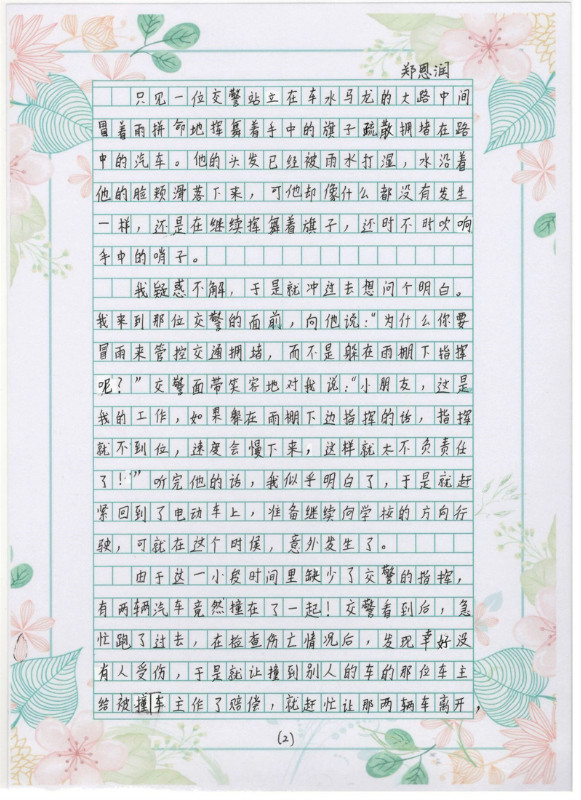 郑恩润
只见一位交警站立在车水马龙的大路中间
冒着雨拼命地挥舞着手中的旗子疏散拥堵在路
中的汽车。他的头发已经被雨水打湿，水沿着
他的脸颊滑落下来，可他却像什么都没有发生
一样，还是在继续挥舞着旗子，还时不时吹响
手中的哨子。
我疑惑不解，于是就冲过去想问个明白。
我来到那位交警的面前，向他说：“为什么你要
冒雨来管控交通拥堵，而不是躲在雨棚下指挥
呢？”交警面带笑容地对我说：“小朋友，这是
我的工作，如果躲在雨棚下边指挥的话，指挥
就不到位，速度会慢下来，这样就太不负责任
了！”听完他的话，我似乎明白了，于是就赶
紧回到了电动车上，准备继续向学校的方向行
驶，可就在这个时候，意外发生了。
由于这一小段时间里缺少了交警的指挥，
有两辆汽车竟然撞在了一起！交警看到后，急
忙跑了过去，在检查伤亡情况后，发现幸好没
有人受伤，于是就让撞到别人的车的那位车主
给被撞车主作了赔偿，就赶忙让那两辆车离开，
(2)